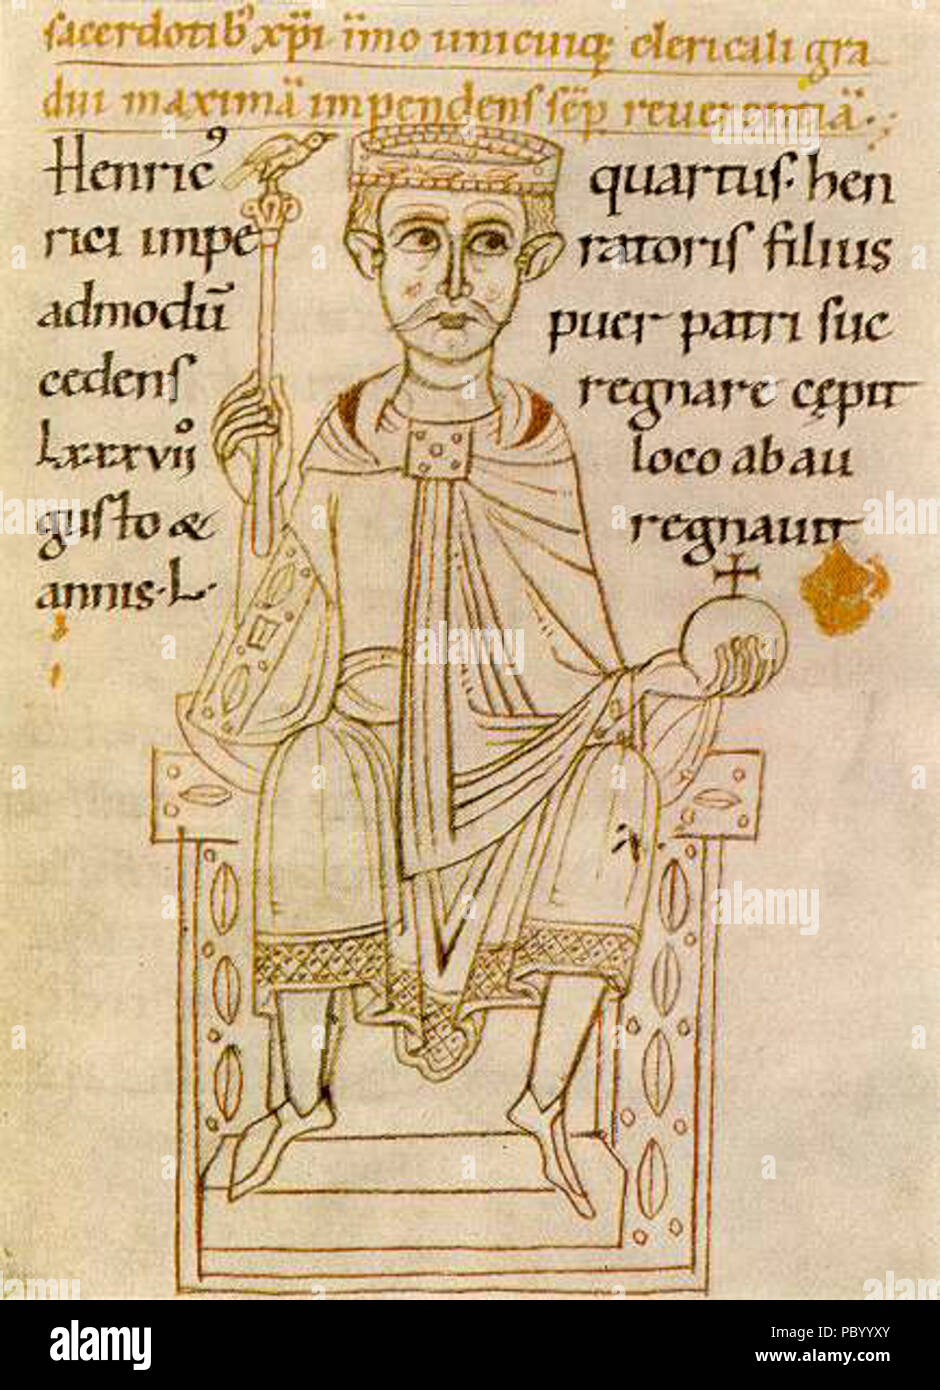 sacerdotib⁹ xp̄i īmo unicuiq; clericali gra
dui maximā impendens sēp reuerentiā.
Henric⁹ quartus. hen
rici impe ratoris filius
admodū puer patri suc
cedens regnare cępit
Lxxxvijº loco ab au
gusto & regnauit
annis. L.
alamy
Image ID: PBYYXY
www.alamy.com